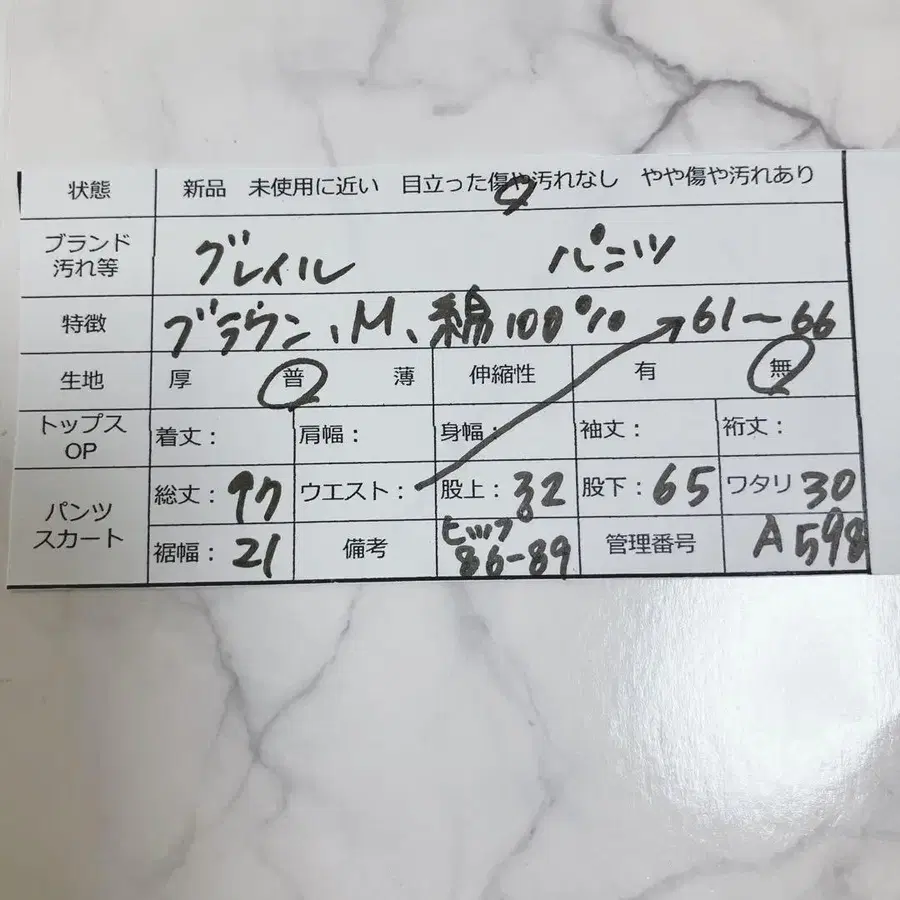 状態 新品 未使用に近い 目立った傷や汚れなし やや傷や汚れあり
ブランド
汚れ等 グレイル パンツ
特徴 ブラウン、M、綿100% 61〜66
生地 厚 普 薄 伸縮性 有 無
トップス
OP 着丈: 肩幅: 身幅: 袖丈: 裄丈:
パンツ
スカート
総丈: 97 ウエスト: 股上: 32 股下: 65 ワタリ 30
裾幅: 21 備考 ヒップ 86-89 管理番号 A598